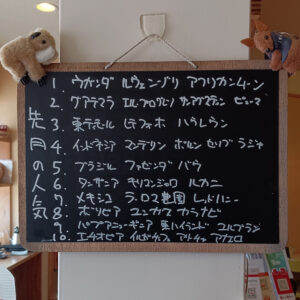 先月の人気
1. ウガンダ ルウェンゾリ アフリカンムーン
2. グアテマラ エル・プログレソ サンアグスティン ピューマ
3. 東ティモール レテフォホ ハウレウン
4. インドネシア マンデリン ポルン セリブ ラジャ
5. ブラジル ファゼンダ バウ
6. タンザニア キリマンジャロ ルカニ
7. メキシコ ラ・ロマ農園 レッドハニー
8. ボリビア ユンガス カラナビ
9. パプアニューギニア 東ハイランド コルブラン
10. エチオピア イルガチェフェ アリーチャ